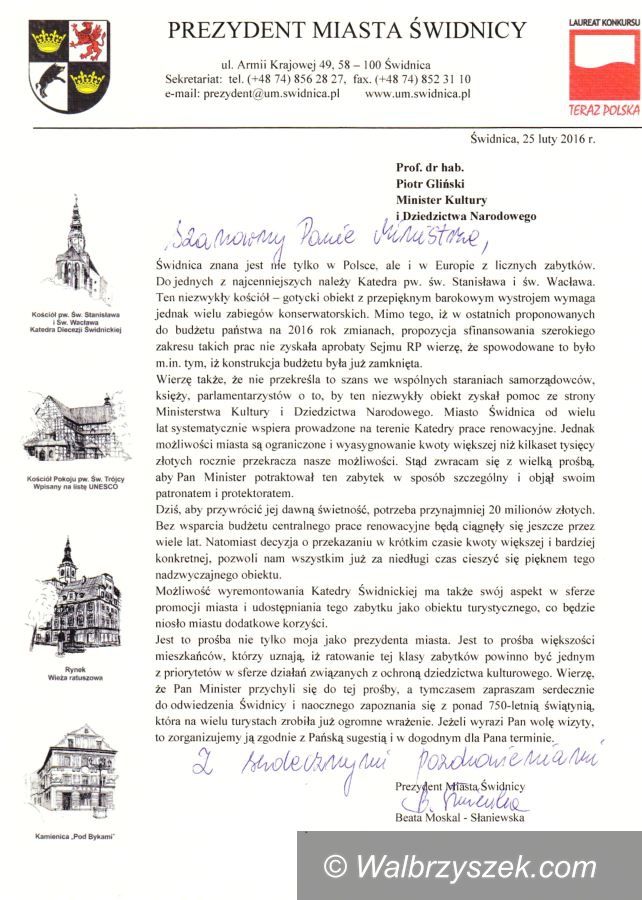 PREZYDENT MIASTA ŚWIDNICY
ul. Armii Krajowej 49, 58 – 100 Świdnica
Sekretariat: tel. (+48 74) 856 28 27, fax. (+48 74) 852 31 10
e-mail: prezydent@um.swidnica.pl www.um.swidnica.pl
LAUREAT KONKURSU
TERAZ POLSKA
Świdnica, 25 luty 2016 r.
Prof. dr hab.
Piotr Gliński
Minister Kultury
i Dziedzictwa Narodowego
Szanowny Panie Ministrze,
Świdnica znana jest nie tylko w Polsce, ale i w Europie z licznych zabytków.
Do jednych z najcenniejszych należy Katedra pw. św. Stanisława i św. Wacława.
Ten niezwykły kościół – gotycki obiekt z przepięknym barokowym wystrojem wymaga
jednak wielu zabiegów konserwatorskich. Mimo tego, iż w ostatnich proponowanych
do budżetu państwa na 2016 rok zmianach, propozycja sfinansowania szerokiego
zakresu takich prac nie zyskała aprobaty Sejmu RP wierzę, że spowodowane to było
m.in. tym, iż konstrukcja budżetu była już zamknięta.
Wierzę także, że nie przekreśla to szans we wspólnych staraniach samorządowców,
księży, parlamentarzystów o to, by ten niezwykły obiekt zyskał pomoc ze strony
Ministerstwa Kultury i Dziedzictwa Narodowego. Miasto Świdnica od wielu
lat systematycznie wspiera prowadzone na terenie Katedry prace renowacyjne. Jednak
możliwości miasta są ograniczone i wyasygnowanie kwoty większej niż kilkaset tysięcy
złotych rocznie przekracza nasze możliwości. Stąd zwracam się z wielką prośbą,
aby Pan Minister potraktował ten zabytek w sposób szczególny i objął swoim
patronatem i protektoratem.
Dziś, aby przywrócić jej dawną świetność, potrzeba przynajmniej 20 milionów złotych.
Bez wsparcia budżetu centralnego prace renowacyjne będą ciągnęły się jeszcze przez
wiele lat. Natomiast decyzja o przekazaniu w krótkim czasie kwoty większej i bardziej
konkretnej, pozwoli nam wszystkim już za niedługi czas cieszyć się pięknem tego
nadzwyczajnego obiektu.
Możliwość wyremontowania Katedry Świdnickiej ma także swój aspekt w sferze
promocji miasta i udostępniania tego zabytku jako obiektu turystycznego, co będzie
niosło miastu dodatkowe korzyści.
Jest to prośba nie tylko moja jako prezydenta miasta. Jest to prośba większości
mieszkańców, którzy uznają, iż ratowanie tej klasy zabytków powinno być jednym
z priorytetów w sferze działań związanych z ochroną dziedzictwa kulturowego. Wierzę,
że Pan Minister przychyli się do tej prośby, a tymczasem zapraszam serdecznie
do odwiedzenia Świdnicy i naocznego zapoznania się z ponad 750-letnią świątynią,
która na wielu turystach zrobiła już ogromne wrażenie. Jeżeli wyrazi Pan wolę wizyty,
to zorganizujemy ją zgodnie z Pańską sugestią i w dogodnym dla Pana terminie.
Z serdecznymi pozdrowieniami
Prezydent Miasta Świdnicy
Beata Moskal - Słaniewska
Kościół pw. Św. Stanisława
i Św. Wacława
Katedra Diecezji Świdnickiej
Kościół Pokoju pw. Św. Trójcy
Wpisany na listę UNESCO
Rynek
Wieża ratuszowa
Kamienica „Pod Bykami”
© Walbrzyszek.com